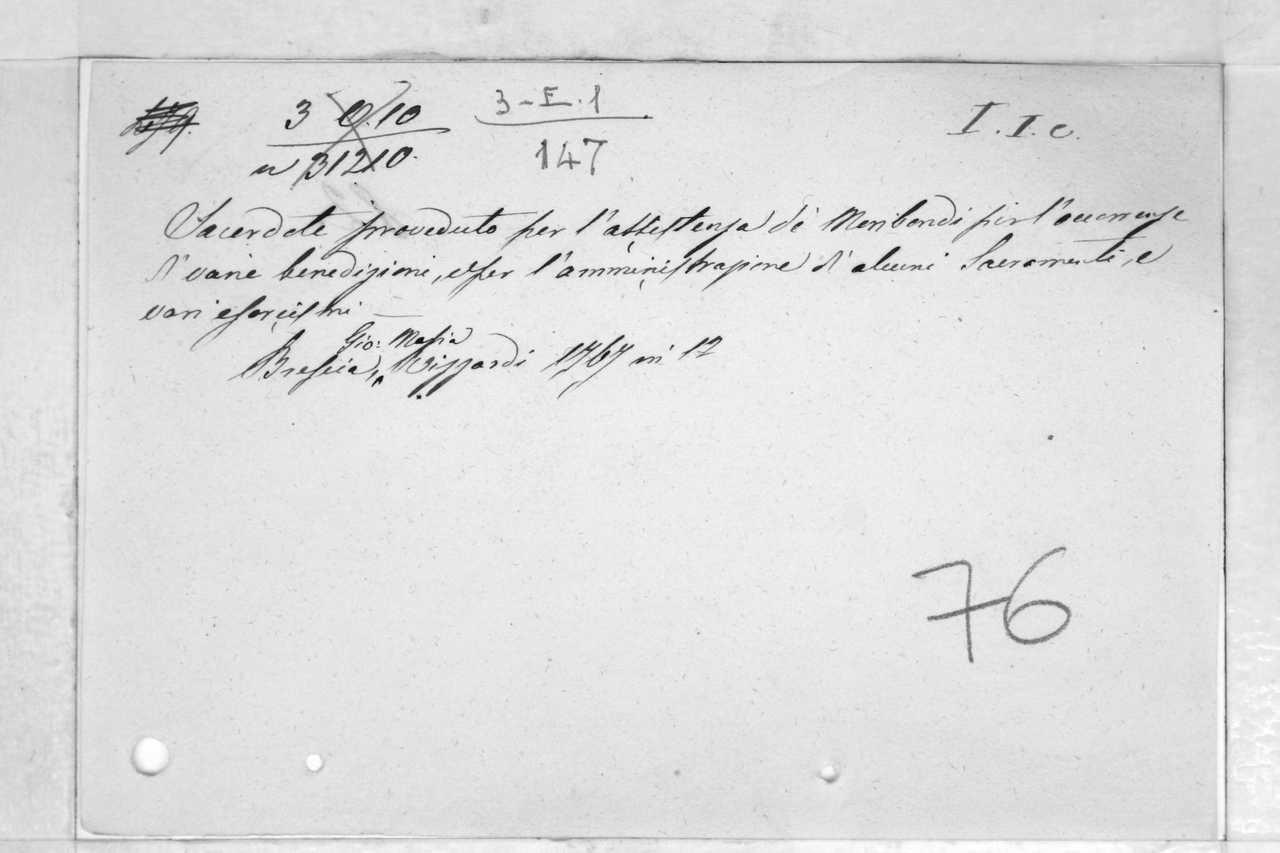 3 O.10 3-E.1 I.I.c.
n 31210. 147
Sacerdote proveduto per l'assistenza de' Moribondi per l'occorrenze
d'varie benedizioni, e per l'amministrazione d'alcuni Sacramenti, e
vari esorcismi —
Gio: Maria
Brescia, Rizzardi 1767 in 12
76